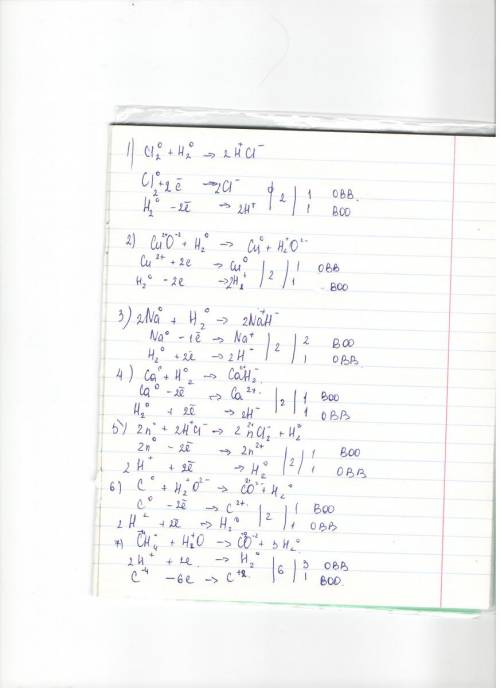 1) Cl₂⁰ + H₂⁰ → 2H⁺Cl⁻
Cl₂⁰ + 2ē → 2Cl⁻ | 2 | 1 ОВВ.
H₂⁰ - 2ē → 2H⁺ | 1 ВОО
2) Cu²⁺O⁻² + H₂⁰ → Cu⁰ + H₂⁺O²⁻
Cu²⁺ + 2e → Cu⁰ | 2 | 1 ОВВ
H₂⁰ - 2e → 2H⁺ | 1 ВОО
3) 2Na⁰ + H₂⁰ → 2Na⁺H⁻
Na⁰ - 1ē → Na⁺ | 2 | 2 ВОО
H₂⁰ + 2ē → 2H⁻ | 1 ОВВ.
4) Ca⁰ + H₂⁰ → Ca²⁺H₂⁻
Ca⁰ - 2ē → Ca²⁺ | 2 | 1 ВОО
H₂⁰ + 2ē → 2H⁻ | 1 ОВВ
5) Zn⁰ + 2H⁺Cl⁻ → Zn²⁺Cl₂⁻ + H₂⁰
Zn⁰ - 2ē → Zn²⁺ | 2 | 1 ВОО
2H⁺ + 2ē → H₂⁰ | 1 ОВВ
6) C⁰ + H₂⁺O²⁻ → C²⁺O²⁻ + H₂⁰
C⁰ - 2ē → C²⁺ | 2 | 1 ВОО
2H⁺ + 2ē → H₂⁰ | 1 ОВВ
7) C⁻⁴H₄ + H₂⁺O → C⁺²O⁻² + 3H₂⁰
2H⁺ + 2e → H₂⁰ | 6 | 3 ОВВ
C⁻⁴ - 6e → C⁺² | 1 ВОО.